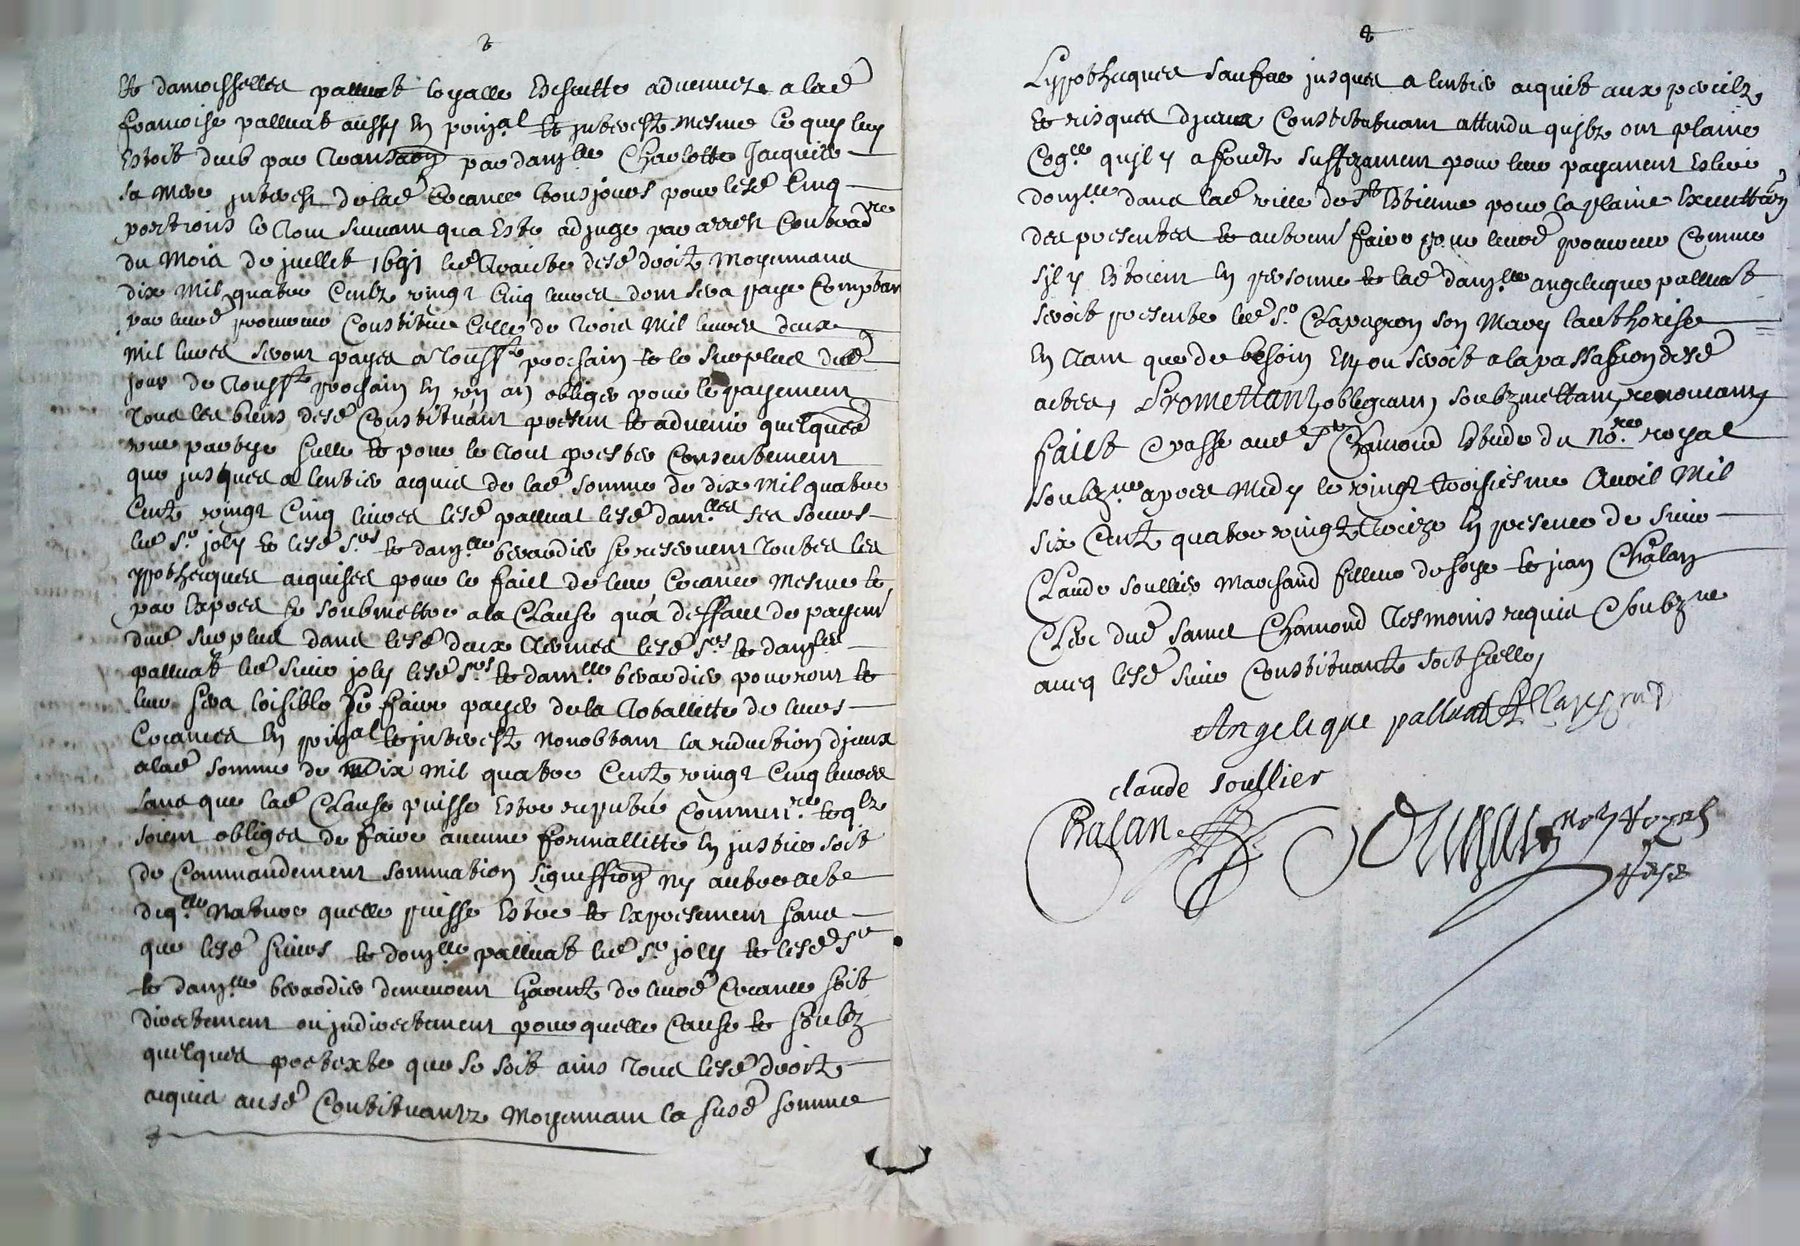 Et damoisselles palluat loyalle Escheutte advenueze a lad
francoise palluat aussy En prinal Et Interestz mesme Ce quy luy
Estoit dheub par transaon par damlle Charlotte Jacquier
sa Mere Interestz de lad Creance tousjours pour lesd Cinq
portions le tout suivant qua Este adjuge par arrest Contradre
du Mois de juillet 1691 led traicte desd droitz Moyennant
dix Mil quatre Centz vingt Cinq livres dont sera paye Comptan
par leurd procureur Constitue Celle de trois Mil livres deux
mil livres seront payes a toussts prochain Et le surplus dud
jour de toussts prochain En un an obliges pour le payement
tous les biens desd Constituant present Et advenir quelques
une partye Icelle Et pour le tout prester Consentement
que jusques a lentier acquit de lad somme de dix Mil quatre
Centz vingt Cinq livres lesd palluat lesd damlles ses soeurs
led Sr joly Et lesd Srs Et damlle berardier se reservent toutes les
ypothecques acquises pour le faict de leur Creance Mesme Et
par Expres se soubmettre a la Clause qua deffaut de payemt
dud surplus dans lesd deux termes lesd Srs Et damlles
palluat led Sieur joly lesd Srs Et damlle berardier pourront Et
leur sera loisible se faire payer de la toballitte de leurs
Creances En prinal Et Interestz nonobtant la reduction djceux
a lad somme de Dix Mil quatre Centz vingt Cinq livres
sans que lad Clause puisse Estre reputée Comminre Et qlz
soient obliges de faire aucune formallitte En justice soit
de Commandement sommation siguiffion ny autre acte
de qlle Nature quelle puisse Estre Et Expressement sans
que lesd sieurs Et damlle palluat led Sr joly Et lesd Sr
Et damlle berardier demeurent garentz de leurd Creance soit
directement ou jndirectement pour quelle Cause Et soubz
quelques pretexte que se soit ains tous lesd droitz
acquis ausd Contituantz Moyennant la susd somme
Lypothecques saufae jusques a lentier acquit aux perielz
Et risques djceux Constituant attendu qujlz ont plaine
Cogce qujl y a fondz suffizament pour leur payement Eslire
domlle dans lad ville de St Estienne pour la plaine Execution
des presentes Et autremt faire pour leurd procureur Comme
sjl y Estoient En personne Et lad damlle angelicque palluat
seroit presente led Sr Chapagnon son Mary lauthorise
En tant que de besoin Est ou seroit a la passassion desd
actes, Promettant, obligeant, soubzmettant, renonceant,
faict & passe aud St Chamond Estude du nore royal
soubzne apres Midy le vingt troisiesme Avril Mil
six Cent quatre vingtz treize En presence de sieur
Claude Soullier Marchand filleur de soye Et jean Chalan
Clerc dud Sainct Chamond tesmoins requis & soubzne
avecq lesd sieur Constituantz soit scelle,
Angelique palluat
claude soullier
Chalan